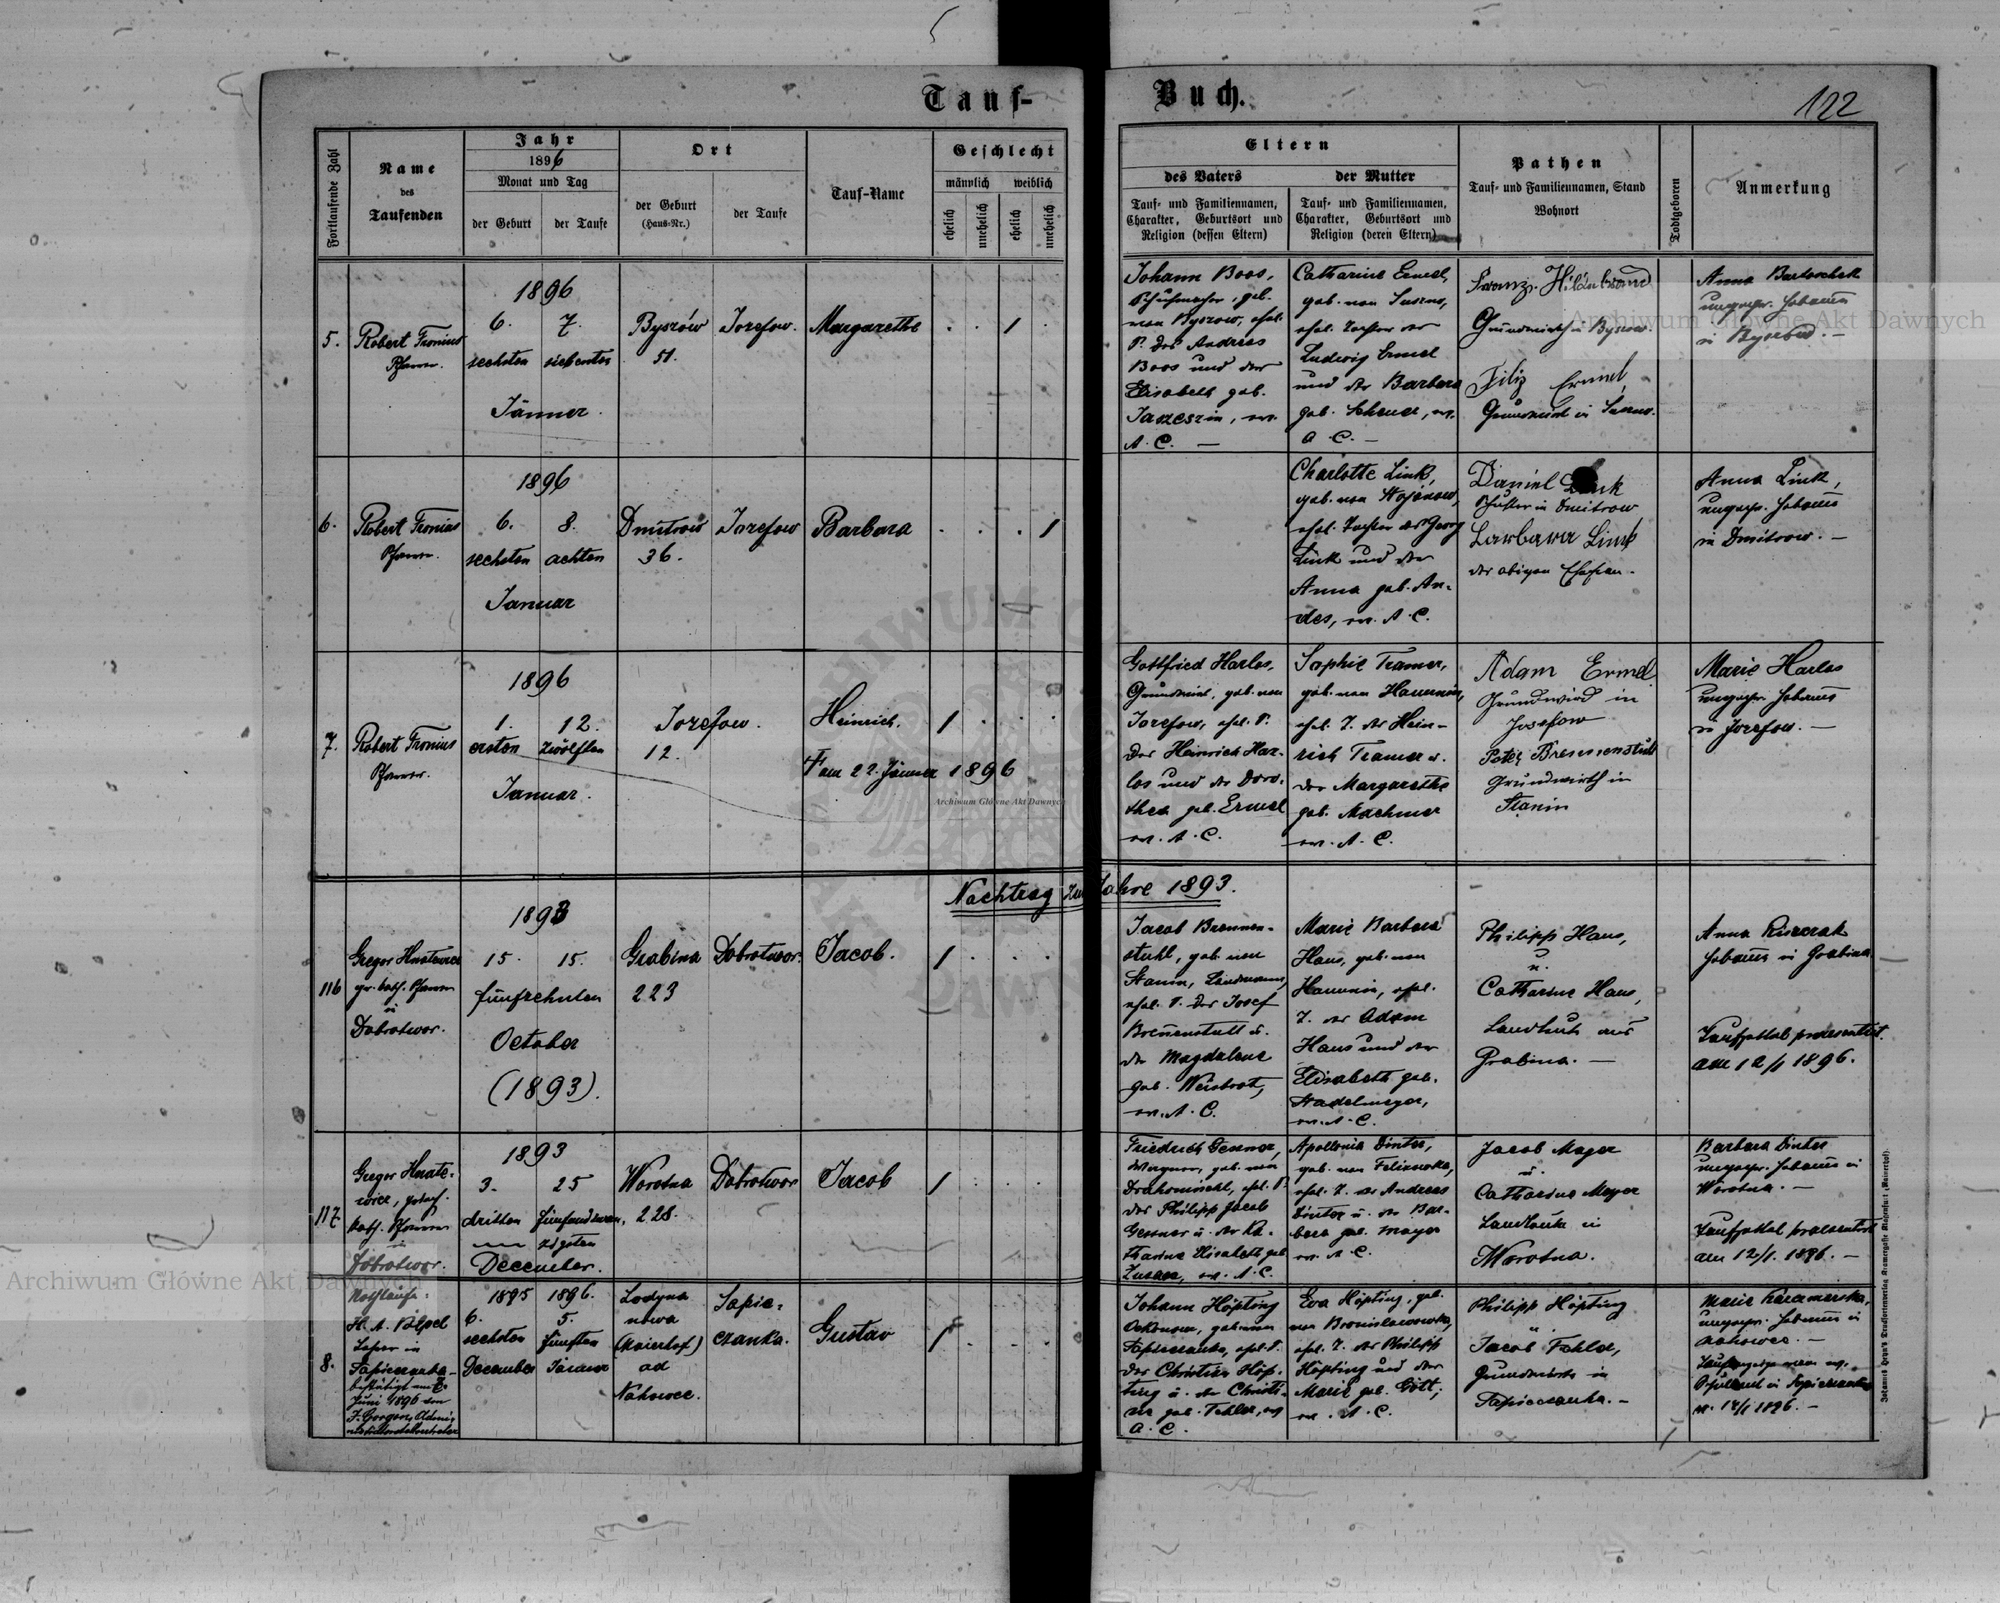 Tauf-
Buch.
122
Fortlaufende Zahl
Name
des
Taufenden
Jahr
1896
Monat und Tag
der Geburt
der Taufe
Ort
der Geburt
(Haus-Nr.)
der Taufe
Tauf-Name
Geschlecht
männlich
weiblich
ehelich
unehelich
ehelich
unehelich
Eltern
des Vaters
Tauf- und Familiennamen,
Charakter, Geburtsort und
Religion (dessen Eltern)
der Mutter
Tauf- und Familiennamen,
Charakter, Geburtsort und
Religion (deren Eltern)
Pathen
Tauf- und Familiennamen, Stand
Wohnort
Todtgeboren
Anmerkung
5.
Robert Fronius
Pfarrer.
1896
6. 7.
sechsten siebenten
Jänner.
Byszów
51.
Jozefow.
Margarethe
1
Johann Boos,
Schuhmacher, geb.
von Byszow, ehel.
S. des Andreas
Boos und der
Elisabeth geb.
ev.
A. C. —
Catharine Ermel,
geb. von
ehel. Tochter des
Ludwig Ermel
und der Barbara
geb. Scheuer, ev.
A. C. —
Franz Hildebrand
Grundwirth in Byszow.
Filip Ermel,
Grundwirth in
Anna
ungepr. Hebamme
in
6.
Robert Fronius
Pfarrer.
1896
6. 8.
sechsten achten
Januar
Dmitrow
36.
Jozefow
Barbara
1
Charlotte Link,
geb. von Stojanow,
ehel. Tochter des Georg
Link und der
Anna geb. An-
des, ev. A. C.
Daniel Link
Schuster in Dmitrow
Barbara Link
der obigen Ehefrau.
Anna Link,
ungepr. Hebamme
in Dmitrow. —
7.
Robert Fronius
Pfarrer.
1896
1. 12.
ersten zwölften
Januar.
Jozefow.
12.
Heinrich.
† am 22. Jänner 1896
1
Gottfried Harlos,
Grundwirt, geb. von
Jozefow, ehel. S.
des Heinrich Har-
los und der Doro-
thea geb. Ermel
ev. A. C.
Sophie Tramer,
geb. von Hanunin,
ehel. T. des Hein-
rich Tramer u.
der Margarethe
geb. Machmer
ev. A. C.
Adam Ermel
Grundwird in
Josefow
Peter Brennenstuhl
Grundwirth in
Stanin
Marie Harlos
ungepr. Hebamme
in Jozefow. —
Nachtrag zum Jahre 1893.
116
Gregor Hnatewicz
gr. kath. Pfarrer
in
Dobrotwor.
1893
15. 15.
fünfzehnten
October
(1893).
Grabina
223
Dobrotwor.
Jacob.
1
Jacob Brennen-
stuhl, geb. von
Stanin, Landmann,
ehel. S. des Josef
Brennenstuhl u.
der Magdalene
geb. Weisbrot,
ev. A. C.
Marie Barbara
Haus, geb. von
Hanunin, ehel.
T. des Adam
Haus und der
Elisabeth geb.
Stadelmeyer,
ev. A. C.
Philipp Haus,
u.
Catharine Haus,
Landleute aus
Grabina. —
Anna
Hebamme in Grabina
Taufzettel praesentirt
am 12/1 1896.
117
Gregor Hnate-
wicz, griech.
kath. Pfarrer
in
Dobrotwor.
1893
3. 25
dritten fünfundzwan-
zigsten
December.
Worotna
228.
Dobrotwor
Jacob
1
Friedrich Gessner,
Wagner, geb. von
ehel. S.
des Philipp Jacob
Gessner u. der Ka-
tharine Elisabeth geb.
ev. A. C.
Apollonia Dinter,
geb. von
ehel. T. des Andreas
Dinter u. der Bar-
bara geb. Mayer
ev. A. C.
Jacob Mayer
u.
Catharina Meyer
Landleute in
Worotna.
Barbara Dinter
ungepr. Hebamme in
Worotna. —
Taufzettel praesentirt
am 12/1. 1896. —
8.
Nothtaufe:
H. A. Pilpel
Lehrer in
Sapieczanka
bestätigt am
Juni 1896 von
1895 1896.
6. 5.
sechsten fünften
December Jänner
Lodyna
nowa
(Maierhof)
ad
Nahorce.
Sapie-
czanka.
Gustav
1
Johann Höpting
Oekonom, geb. von
Sapieczanka, ehel. S.
des Christian Höp-
ting u. der Christi-
ne geb. Fehler, ev.
A. C.
Eva Höpting, geb.
von Bronislawowka,
ehel. T. des Philipp
Höpting und der
Marie geb. Gött,
ev. A. C.
Philipp Höpting
u.
Jacob Fehler,
Grundwirthe in
Sapieczanka. —
Marie Karamarska,
ungepr. Hebamme in
Nahorce. —
Schulleiter in Sapieczanka
1896. —
Archiwum Główne Akt Dawnych
Archiwum Główne Akt Dawnych
Archiwum Główne Akt Dawnych